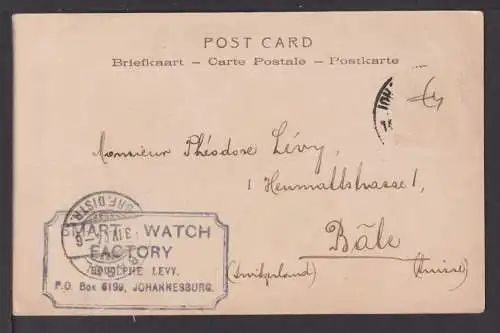 POST CARD
Briefkaart – Carte Postale – Postkarte
JOH
Monsieur Théodore Lévy,
1 Heumattstrasse 1,
Bâle
(Switzerland) (Suisse)
BRF.DISTR.
SMART WATCH
FACTORY
RUDOLPHE LEVY.
P.O. Box 6199, JOHANNESBURG.